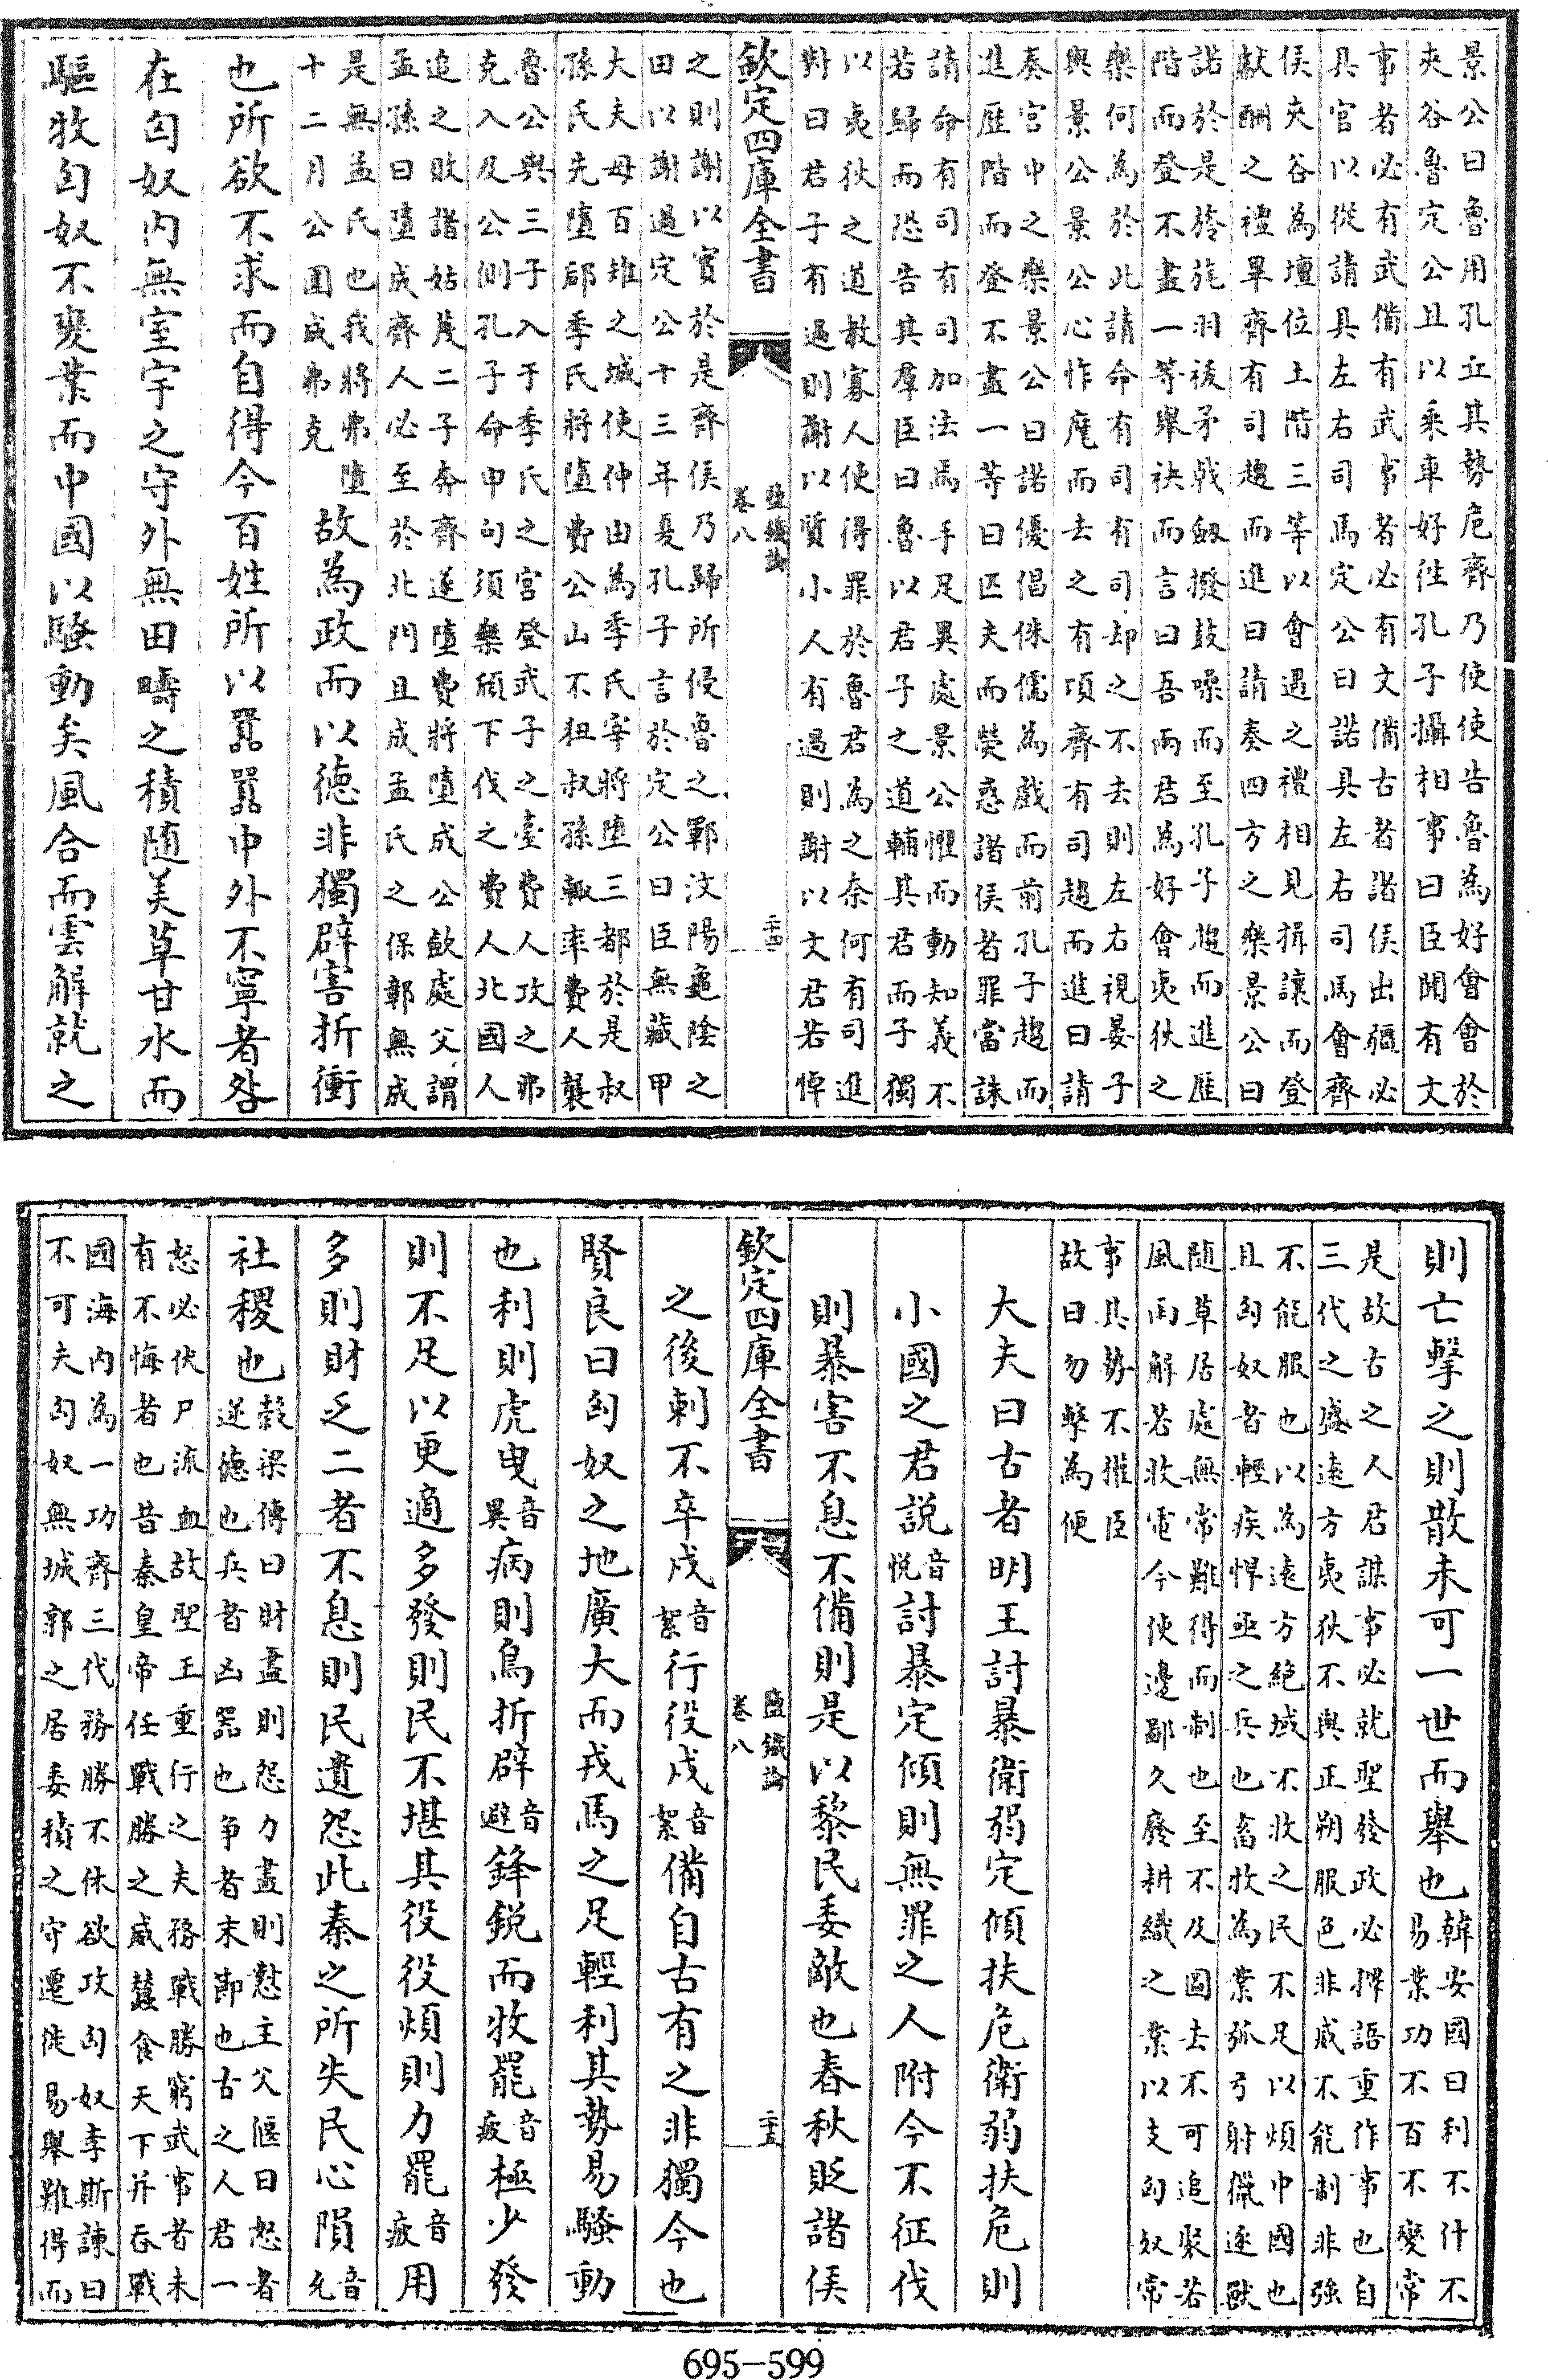 景公曰魯用孔丘其勢危齊乃使使告魯為好會會於
夾谷魯定公且以乘車好徃孔子攝相事曰臣聞有文
事者必有武備有武事者必有文備古者諸侯出疆必
具官以從請具左右司馬定公曰諾具左右司馬會齊
侯夾谷為壇位土階三等以會遇之禮相見揖讓而登
獻酬之禮畢齊有司趨而進曰請奏四方之樂景公曰
諾於是旍旄羽袚矛戟劔撥鼓噪而至孔子趨而進歴
階而登不盡一等舉袂而言曰吾兩君為好會夷狄之
樂何為於此請命有司有司却之不去則左右視晏子
與景公景公心怍麾而去之有頃齊有司趨而進曰請
奏宮中之樂景公曰諾優倡侏儒為戲而前孔子趨而
進歴階而登不盡一等曰匹夫而熒惑諸侯者罪當誅
請命有司有司加法焉手足異處景公懼而動知義不
若歸而恐告其羣臣曰魯以君子之道輔其君而子獨
以夷狄之道教寡人使得罪於魯君為之奈何有司進
對曰君子有過則謝以質小人有過則謝以文君若悼
欽定四庫全書
鹽鐵論
卷八
二十四
之則謝以實於是齊侯乃歸所侵魯之鄆汶陽龜陰之
田以謝過定公十三年夏孔子言於定公曰臣無藏甲
大夫毋百雉之城使仲由為季氏宰將墮三都於是叔
孫氏先墮郈季氏將墮費公山不狃叔孫輒率費人襲
魯公與三子入于季氏之宮登武子之臺費人攻之弗
克入及公側孔子命申句須樂頎下伐之費人北國人
追之敗諸姑蔑二子奔齊遂墮費將墮成公歛處父謂
孟孫曰墮成齊人必至於北門且成孟氏之保鄣無成
是無孟氏也我將弗墮
十二月公圍成弗克
故為政而以德非獨辟害折衝
也所欲不求而自得今百姓所以囂囂中外不寧者咎
在匈奴内無室宇之守外無田疇之積随美草甘水而
驅牧匈奴不變業而中國以騷動矣風合而雲解就之
則亡擊之則散未可一世而舉也
韓安國曰利不什不
易業功不百不變常
是故古之人君謀事必就聖發政必擇語重作事也自
三代之盛遠方夷狄不與正朔服色非威不能制非強
不能服也以為遠方絶域不牧之民不足以煩中國也
且匈奴者輕疾悍亟之兵也畜牧為業弧弓射獵逐獸
随草居處無常難得而制也至不及圖去不可追聚若
風雨解若收電今使邊鄙久廢耕織之業以支匈奴常
事其勢不㩁臣
故曰勿擊為便
大夫曰古者明王討暴衛弱定傾扶危衛弱扶危則
小國之君說
音
悦
討暴定傾則無罪之人附今不征伐
則暴害不息不備則是以黎民委敵也春秋貶諸侯
欽定四庫全書
鹽鐵論
卷八
二十五
之後刺不卒戍
音
絮
行役戍
音
絮
備自古有之非獨今也
賢良曰匈奴之地廣大而戎馬之足輕利其勢易騷動
也利則虎曳
音
異
病則鳥折辟
音
避
鋒銳而牧罷
音
疲
極少發
則不足以更適多發則民不堪其役役煩則力罷
音
疲
用
多則財乏二者不息則民遺怨此秦之所失民心隕
音
允
社稷也
榖梁傳曰財盡則怨力盡則懟主父偃曰怒者
逆德也兵者凶器也争者末節也古之人君一
怒必伏尸流血故聖王重行之夫務戰勝窮武事者未
有不悔者也昔秦皇帝任戰勝之威蠶食天下并吞戰
國海内為一功齊三代務勝不休欲攻匈奴李斯諫曰
不可夫匈奴無城郭之居委積之守遷徙易舉難得而
695-599